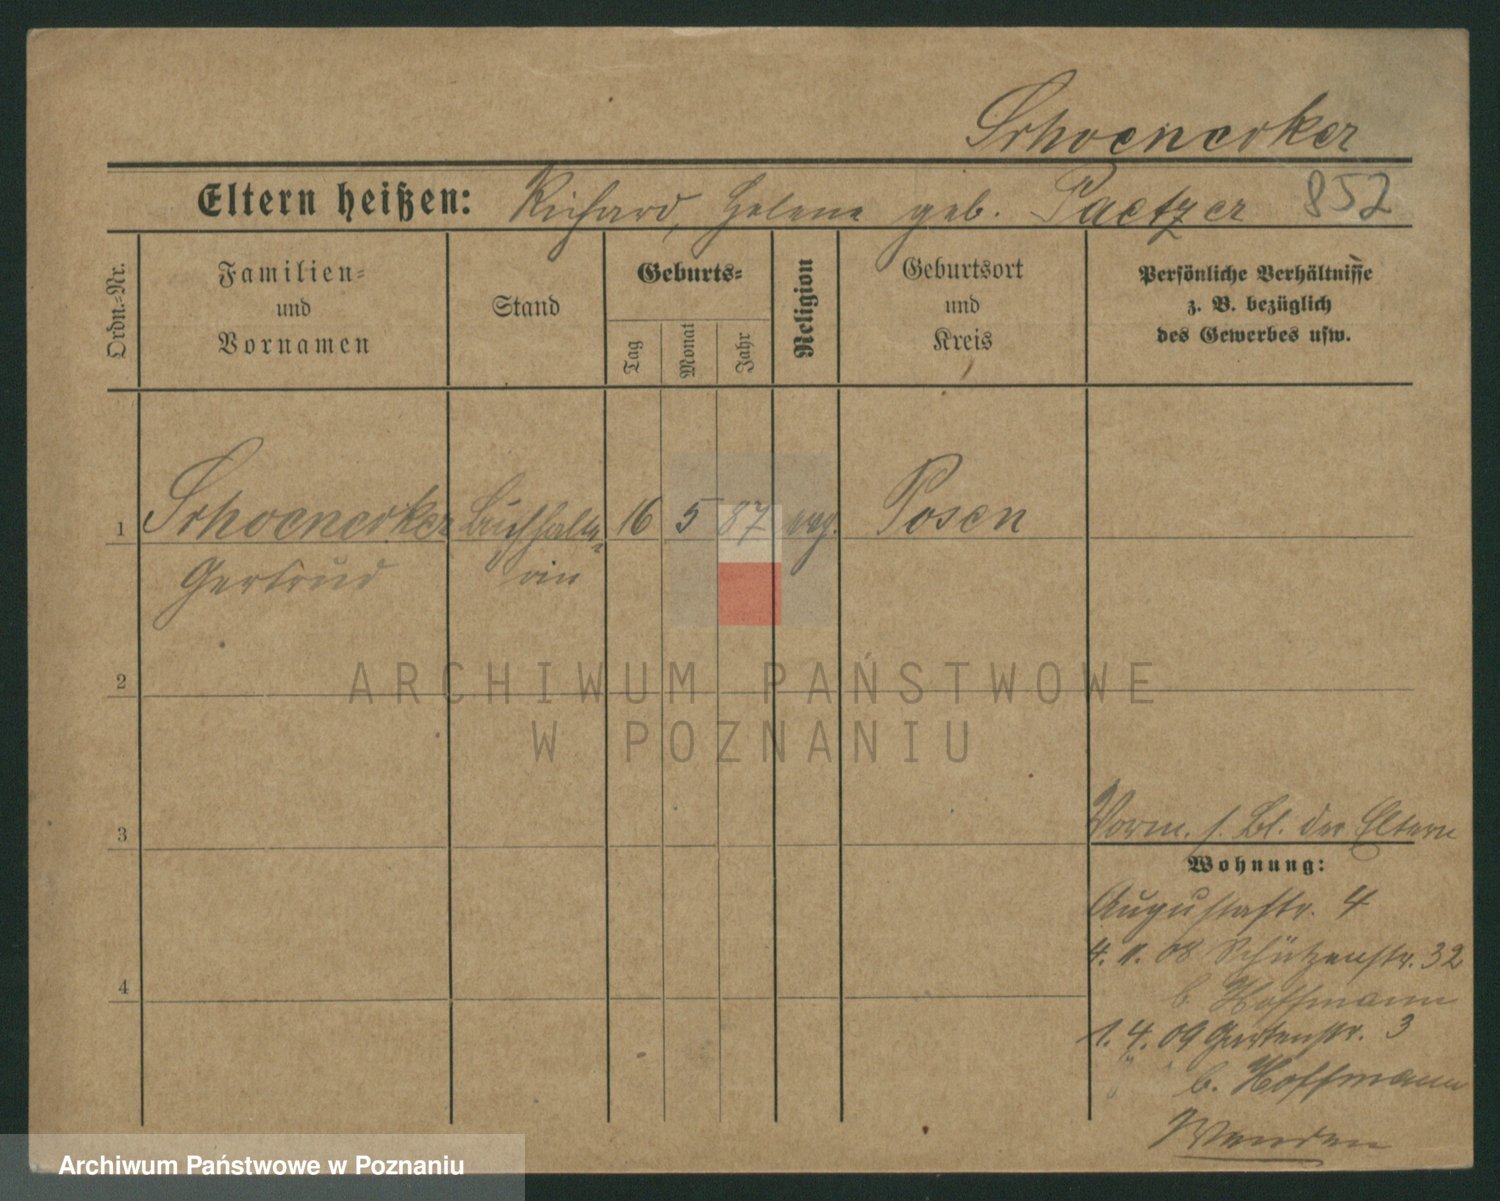 Schoenecker
Eltern heißen: Richard, Helene geb. Paetzer 852
Ordn.-Nr.
Familien-
und
Vornamen
Stand
Geburts-
Tag
Monat
Jahr
Religion
Geburtsort
und
Kreis
Persönliche Verhältnisse
z. B. bezüglich
des Gewerbes usw.
1 Schoenecker Buchhalte- 16 5 87 evg. Posen
Gertrud rin
2
3
4
Vorm. s. Bl. der Eltern
Wohnung:
Augustastr. 4
4. 11. 08 Schützenstr. 32
b. Hoffmann
1. 4. 09 Gartenstr. 3
b. Hoffmann
ARCHIWUM PAŃSTWOWE
W POZNANIU
Archiwum Państwowe w Poznaniu